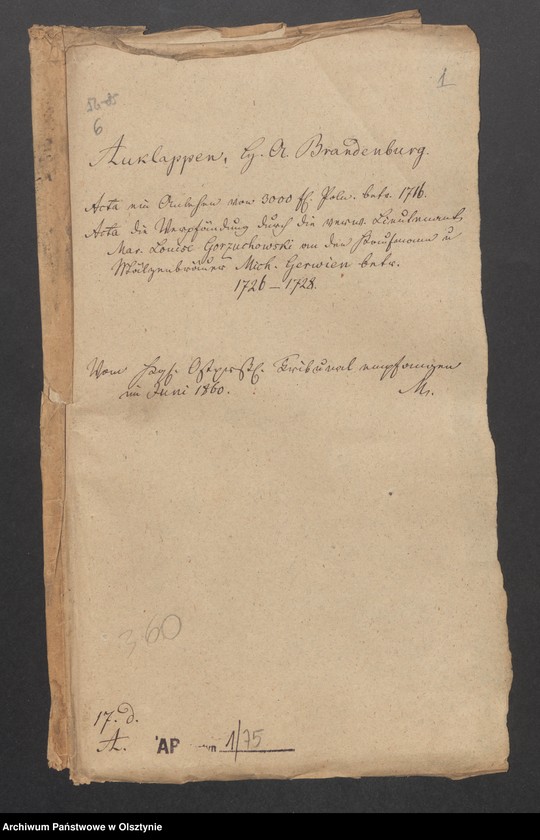 1
6
Auklappen, H. A. Brandenburg.
Acta ein Anlehen von 3000 fl. Poln. betr. 1716.
Acta die Verpfändung durch die verw. Lieutenant
Mar. Louise Gorzuchowski an den Kaufmann u
Mälzenbräuer Mich. Gerwien betr.
1726 – 1728.
Vom Kgl. Ostpreuß. Tribunal empfangen
im Juni 1860. M.
360
17. d.
A.
AP 1/75
Archiwum Państwowe w Olsztynie